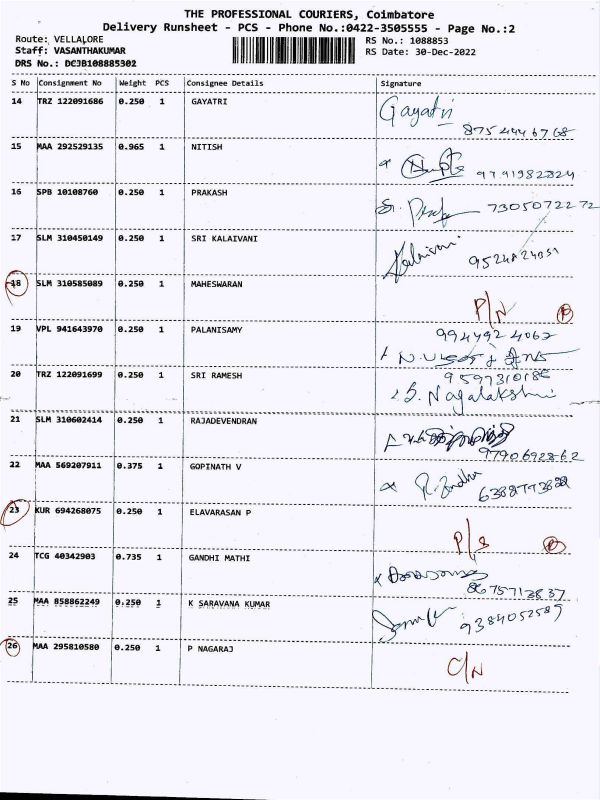 THE PROFESSIONAL COURIERS, Coimbatore
Delivery Runsheet - PCS - Phone No.:0422-3505555 - Page No.:2
Route: VELLALORE
RS No.: 1088853
Staff: VASANTHAKUMAR
RS Date: 30-Dec-2022
DRS No.: DCJB108885302
S No Consignment No Weight PCS Consignee Details Signature
14 TRZ 122091686 0.250 1 GAYATRI Gayatri
8754446768
15 MAA 292529135 0.965 1 NITISH
9791982824
16 SPB 10108760 0.250 1 PRAKASH
7305072272
17 SLM 310450149 0.250 1 SRI KALAIVANI Kalaivani
18 SLM 310585089 0.250 1 MAHESWARAN
P/N
19 VPL 941643970 0.250 1 PALANISAMY 9944924062
20 TRZ 122091699 0.250 1 SRI RAMESH
S. Nagalakshmi
21 SLM 310602414 0.250 1 RAJADEVENDRAN
9790692862
22 MAA 569207911 0.375 1 GOPINATH V
23 KUR 694268075 0.250 1 ELAVARASAN P
P/S
24 TCG 40342903 0.735 1 GANDHI MATHI
8675713837
25 MAA 858862249 0.250 1 K SARAVANA KUMAR
9384052589
26 MAA 295810580 0.250 1 P NAGARAJ
C/N